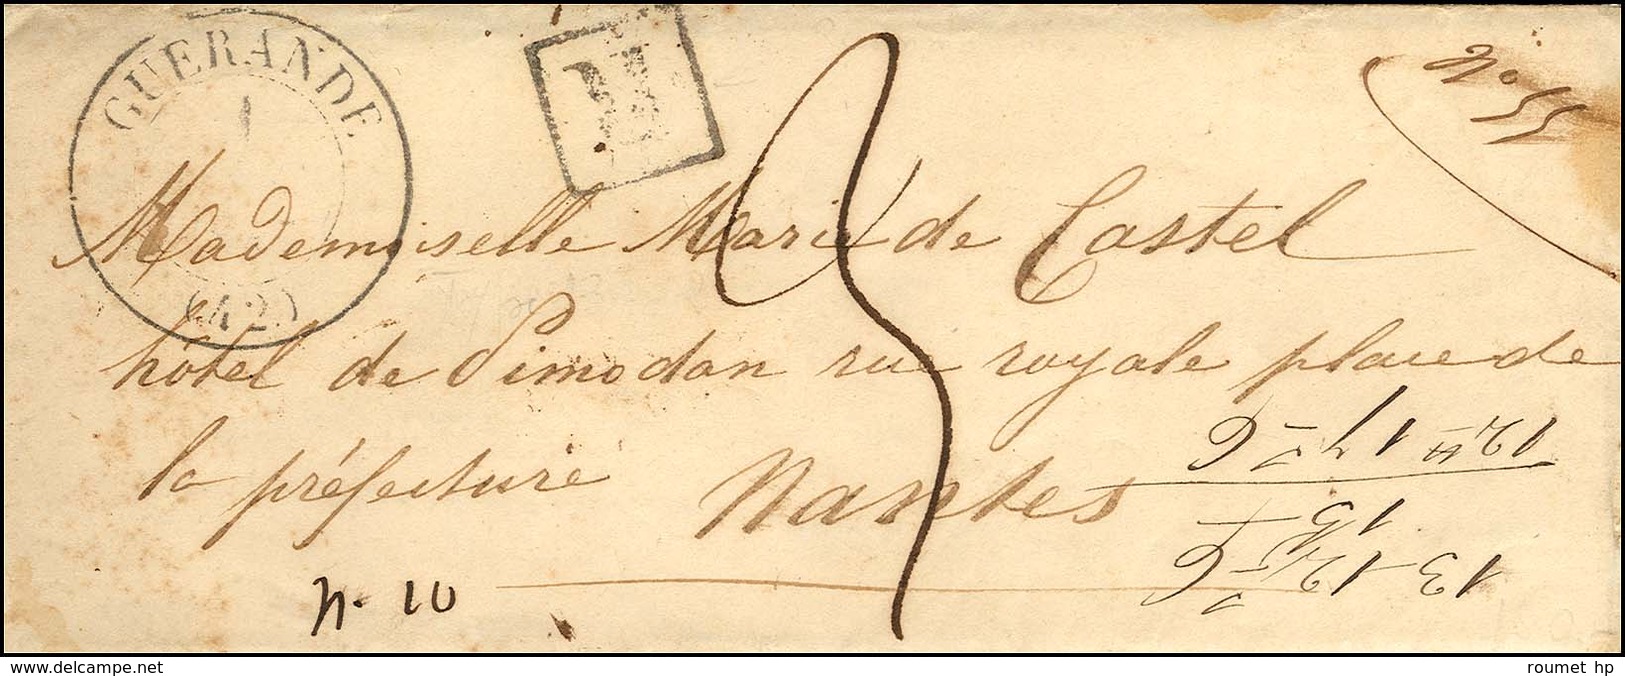 GUERANDE
1
(42)
N° 55
3
Mademoiselle Marie de Castel
hôtel de Pimodan rue royale place de
la préfecture Nantes
n. 10
www.delcampe.net
roumet hp